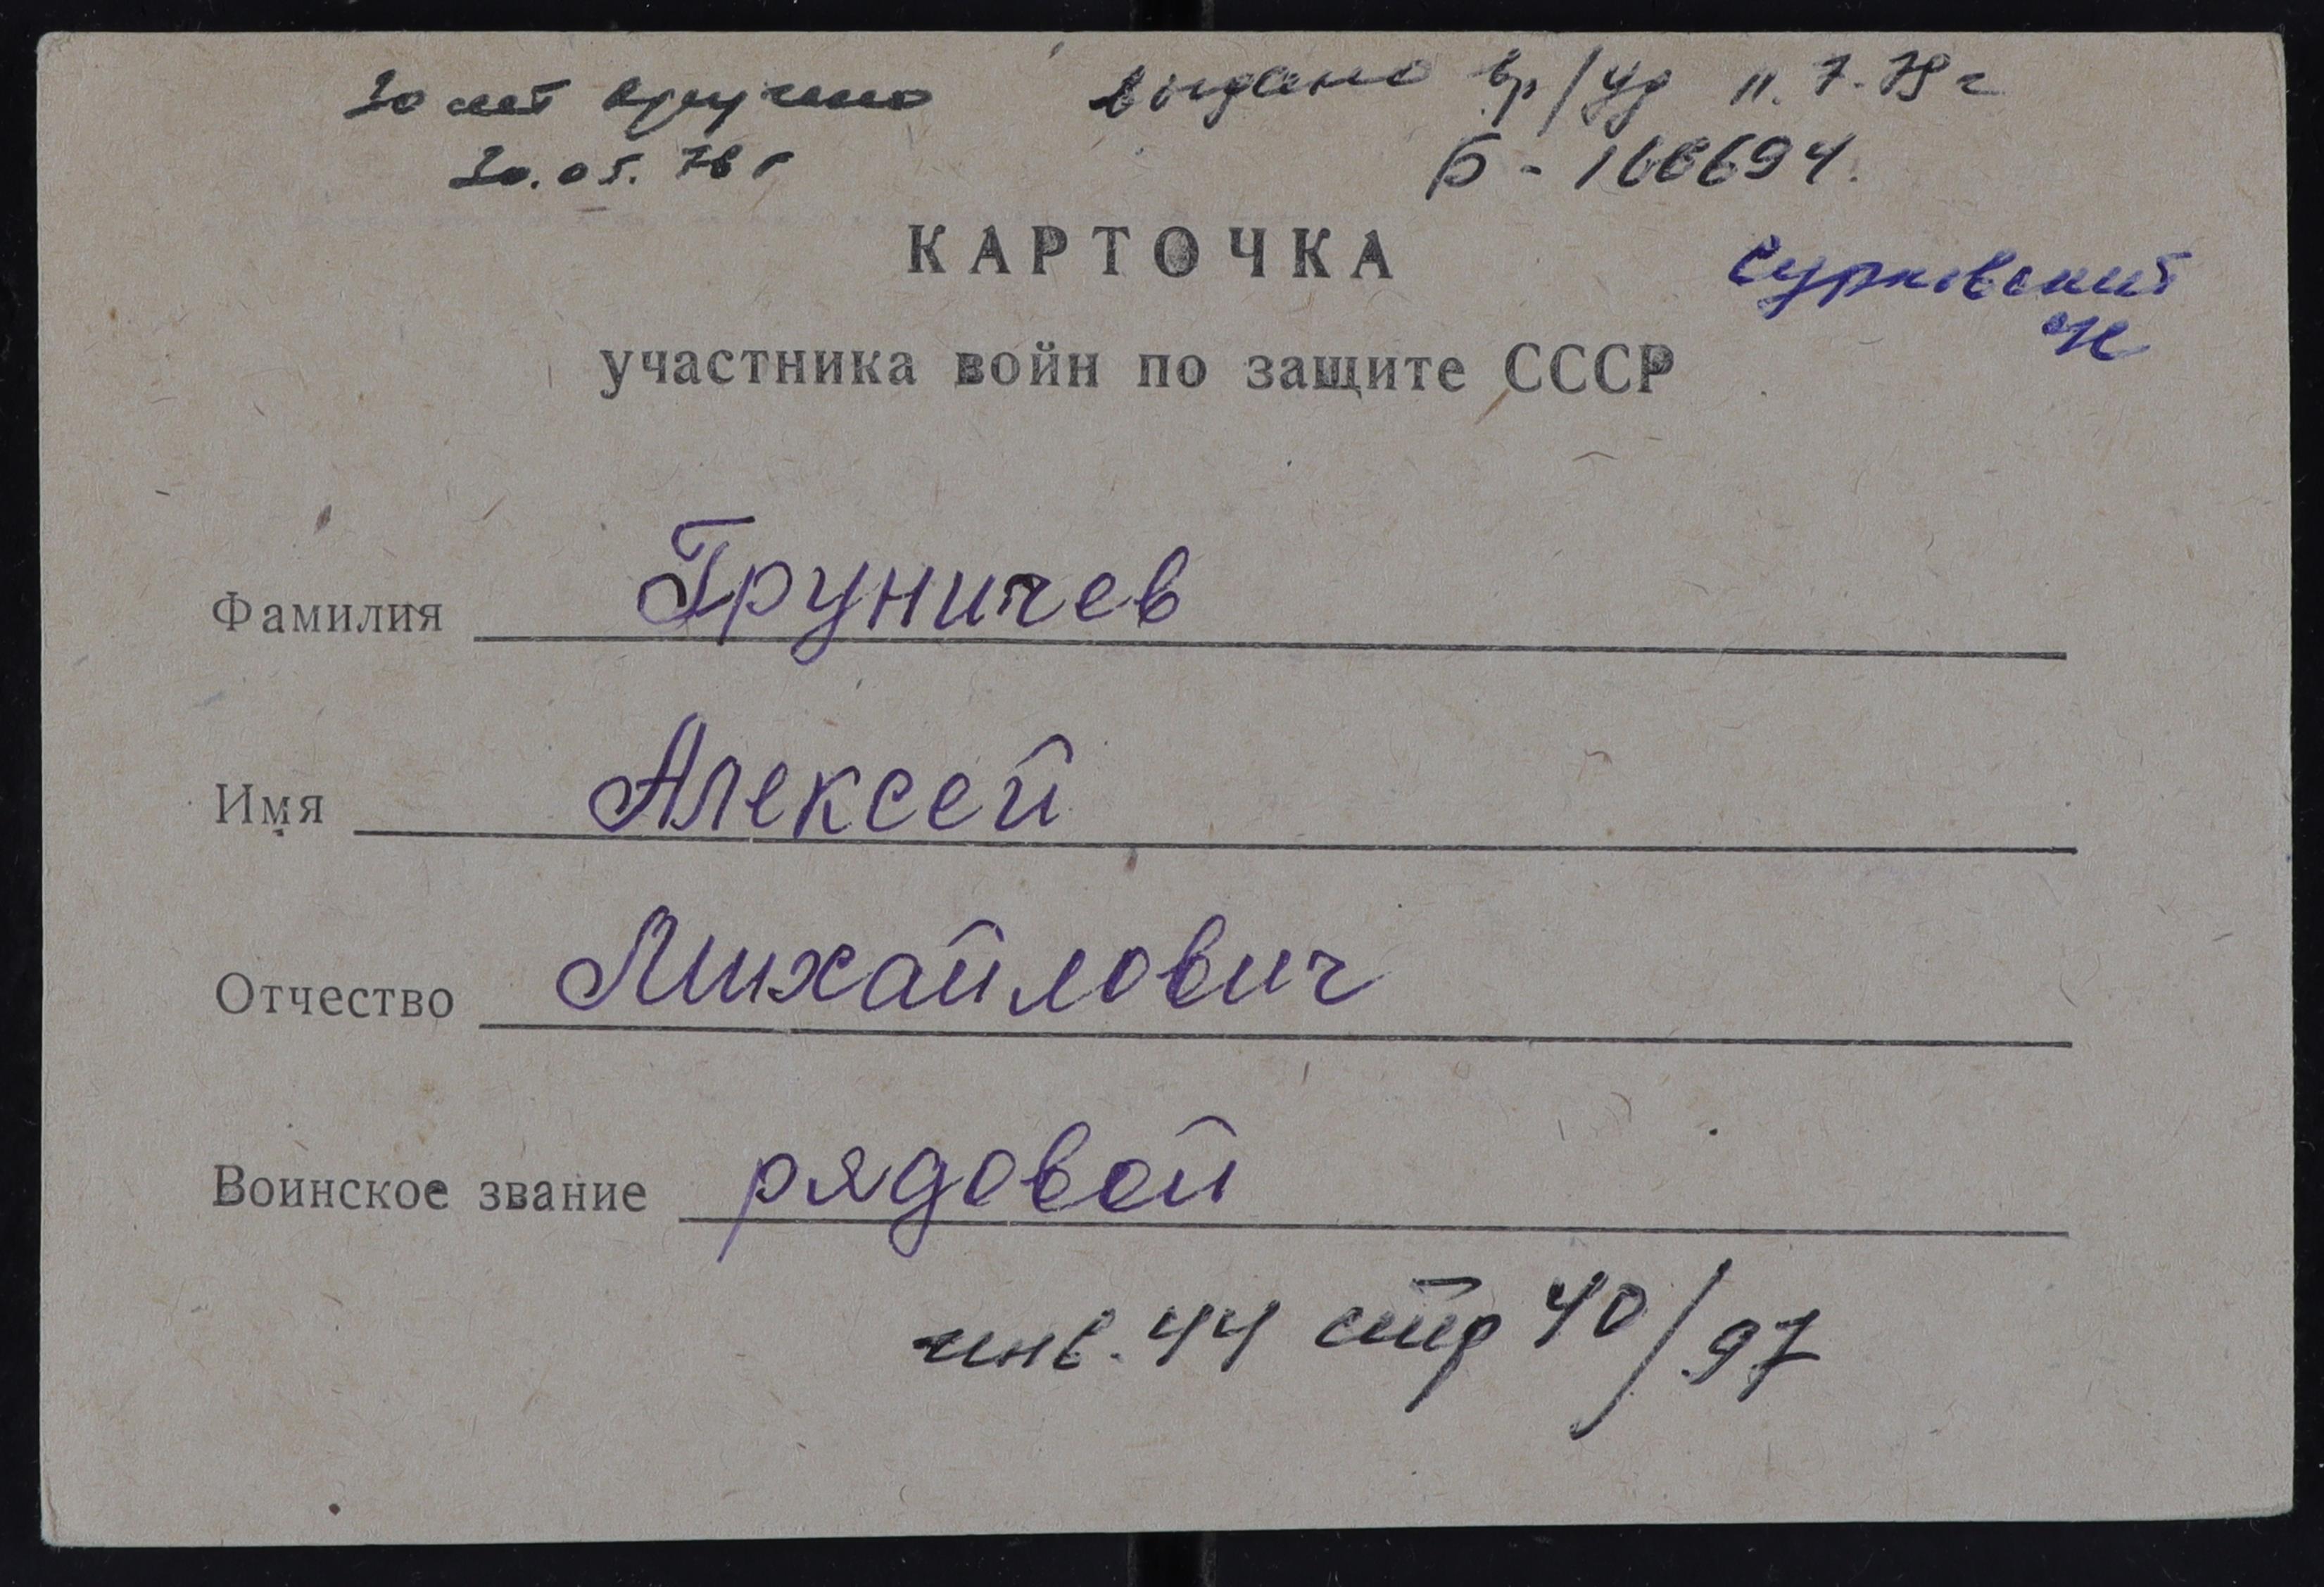 30 лет вручено
30.05.78 г
выдано вр/уд 11.7.79 г
Б-166694.
КАРТОЧКА
Сурковский
участника войн по защите СССР
Фамилия Груничев
Имя Алексей
Отчество Михайлович
Воинское звание рядовой
инв. 44 стр 40/97